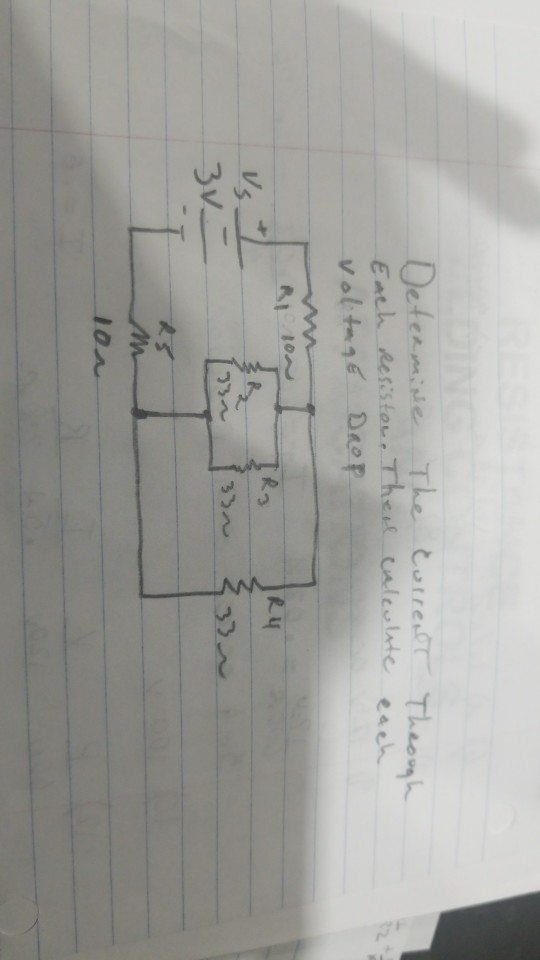 Determine The Current Through
Each resistor. Then calculate each
Voltage Drop
R1 10Ω
Vs +
3V -
R2
33Ω
R3
33Ω
R4
33Ω
R5
10Ω